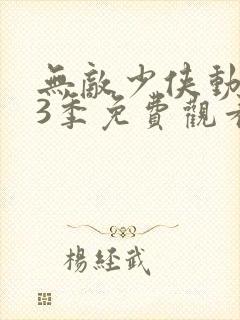 無敵少俠動
3季免費觀
楊經武